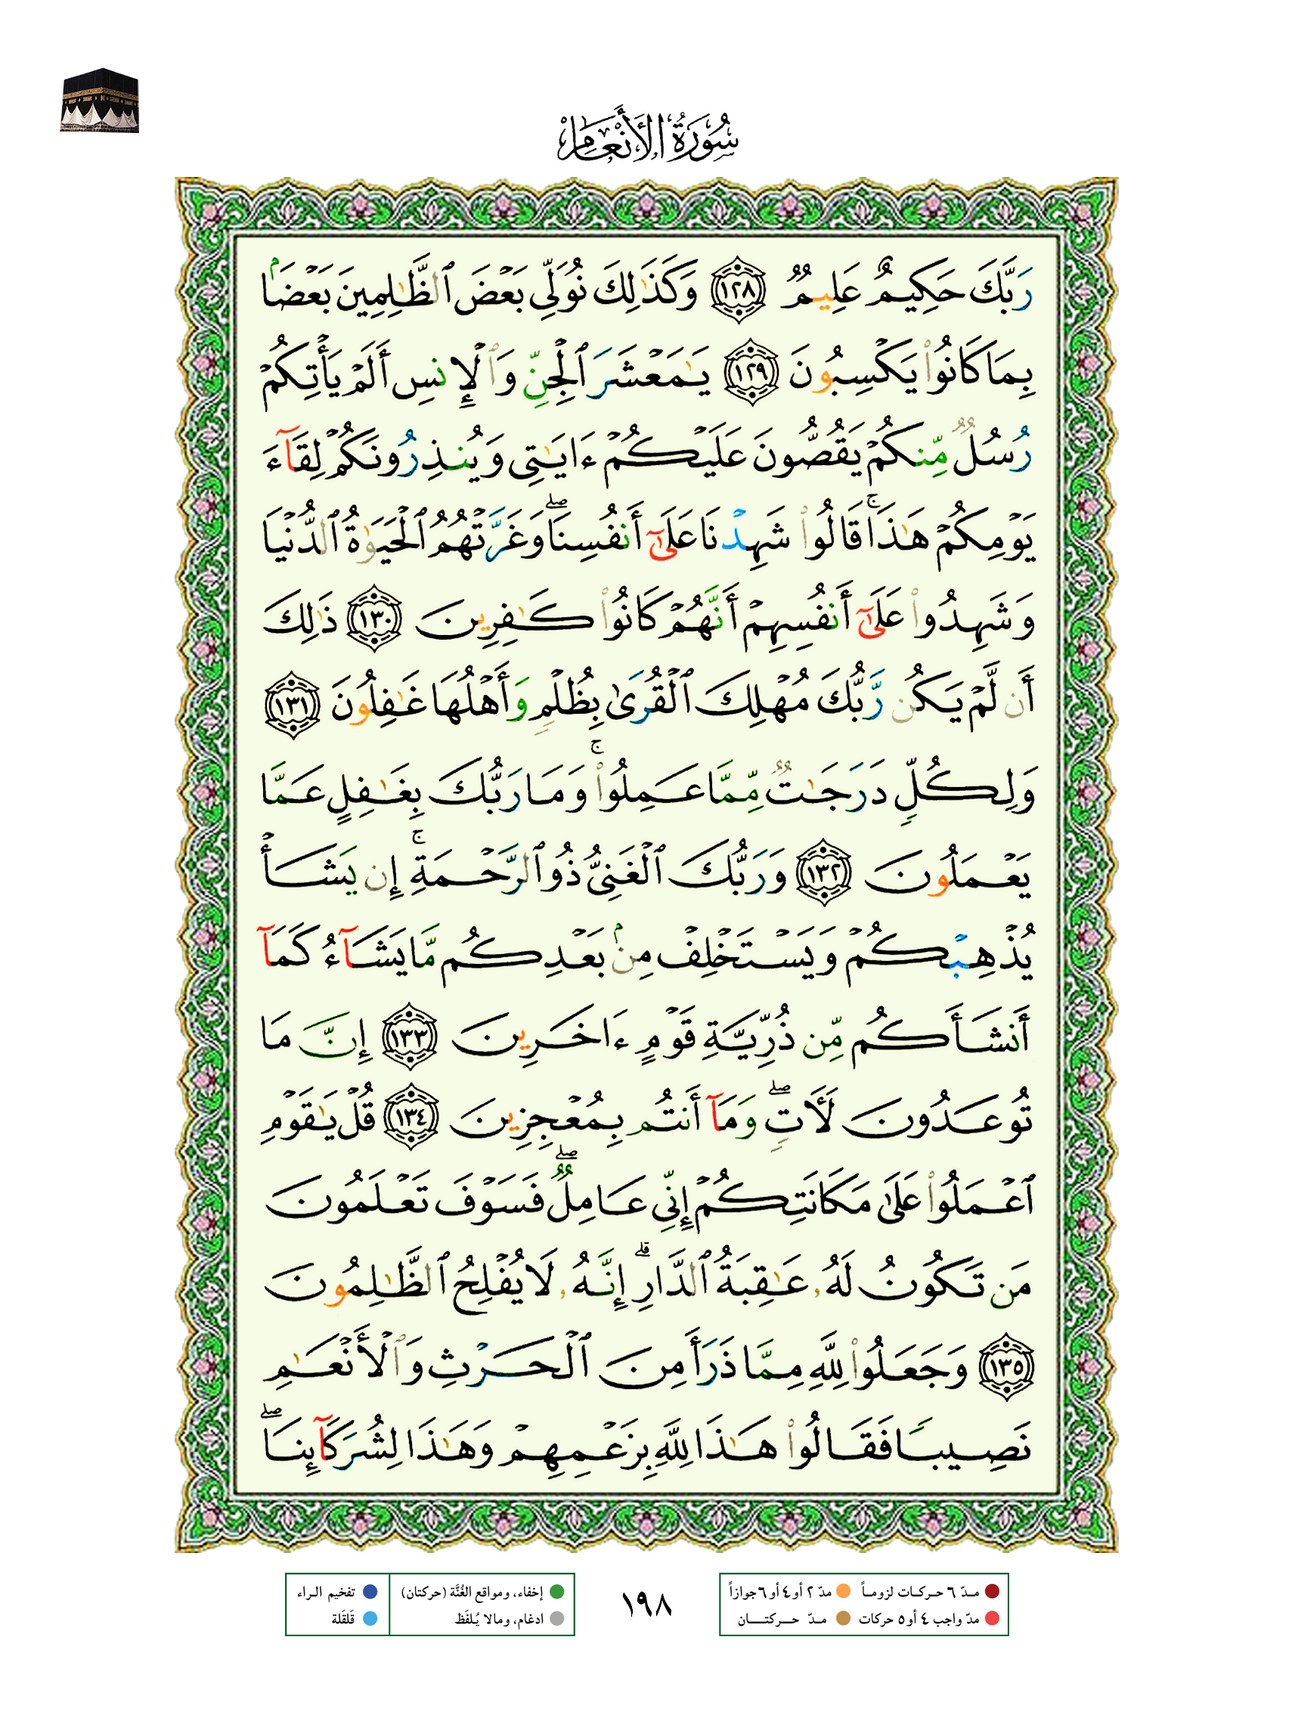 سُورَةُ الأَنْعَامِ
رَبَّكَ حَكِيمٌ عَلِيمٌ ١٢٨ وَكَذَٰلِكَ نُوَلِّي بَعْضَ ٱلظَّٰلِمِينَ بَعْضَۢا
بِمَا كَانُوا۟ يَكْسِبُونَ ١٢٩ يَٰمَعْشَرَ ٱلْجِنِّ وَٱلْإِنسِ أَلَمْ يَأْتِكُمْ
رُسُلٌ مِّنكُمْ يَقُصُّونَ عَلَيْكُمْ ءَايَٰتِى وَيُنذِرُونَكُمْ لِقَآءَ
يَوْمِكُمْ هَٰذَا ۚ قَالُوا۟ شَهِدْنَا عَلَىٰٓ أَنفُسِنَا ۖ وَغَرَّتْهُمُ ٱلْحَيَوٰةُ ٱلدُّنْيَا
وَشَهِدُوا۟ عَلَىٰٓ أَنفُسِهِمْ أَنَّهُمْ كَانُوا۟ كَٰفِرِينَ ١٣٠ ذَٰلِكَ
أَن لَّمْ يَكُن رَّبُّكَ مُهْلِكَ ٱلْقُرَىٰ بِظُلْمٍ وَأَهْلُهَا غَٰفِلُونَ ١٣١
وَلِكُلٍّ دَرَجَٰتٌ مِّمَّا عَمِلُوا۟ ۚ وَمَا رَبُّكَ بِغَٰفِلٍ عَمَّا
يَعْمَلُونَ ١٣٢ وَرَبُّكَ ٱلْغَنِىُّ ذُو ٱلرَّحْمَةِ ۚ إِن يَشَأْ
يُذْهِبْكُمْ وَيَسْتَخْلِفْ مِنۢ بَعْدِكُم مَّا يَشَآءُ كَمَآ
أَنشَأَكُم مِّن ذُرِّيَّةِ قَوْمٍ ءَاخَرِينَ ١٣٣ إِنَّ مَا
تُوعَدُونَ لَءَاتٍ ۖ وَمَآ أَنتُم بِمُعْجِزِينَ ١٣٤ قُلْ يَٰقَوْمِ
ٱعْمَلُوا۟ عَلَىٰ مَكَانَتِكُمْ إِنِّى عَامِلٌ ۖ فَسَوْفَ تَعْلَمُونَ
مَن تَكُونُ لَهُۥ عَٰقِبَةُ ٱلدَّارِ ۗ إِنَّهُۥ لَا يُفْلِحُ ٱلظَّٰلِمُونَ
١٣٥ وَجَعَلُوا۟ لِلَّهِ مِمَّا ذَرَأَ مِنَ ٱلْحَرْثِ وَٱلْأَنْعَٰمِ
نَصِيبًا فَقَالُوا۟ هَٰذَا لِلَّهِ بِزَعْمِهِمْ وَهَٰذَا لِشُرَكَآئِنَا ۖ
مدّ ٦ حركات لزوماً مدّ ٢ أو ٤ أو ٦ جوازاً
مدّ واجب ٤ أو ٥ حركات مدّ حركتان
١٩٨
إخفاء، ومواقع الغُنَّة (حركتان) تفخيم الراء
ادغام، ومالا يُلفَظ قَلقَلة